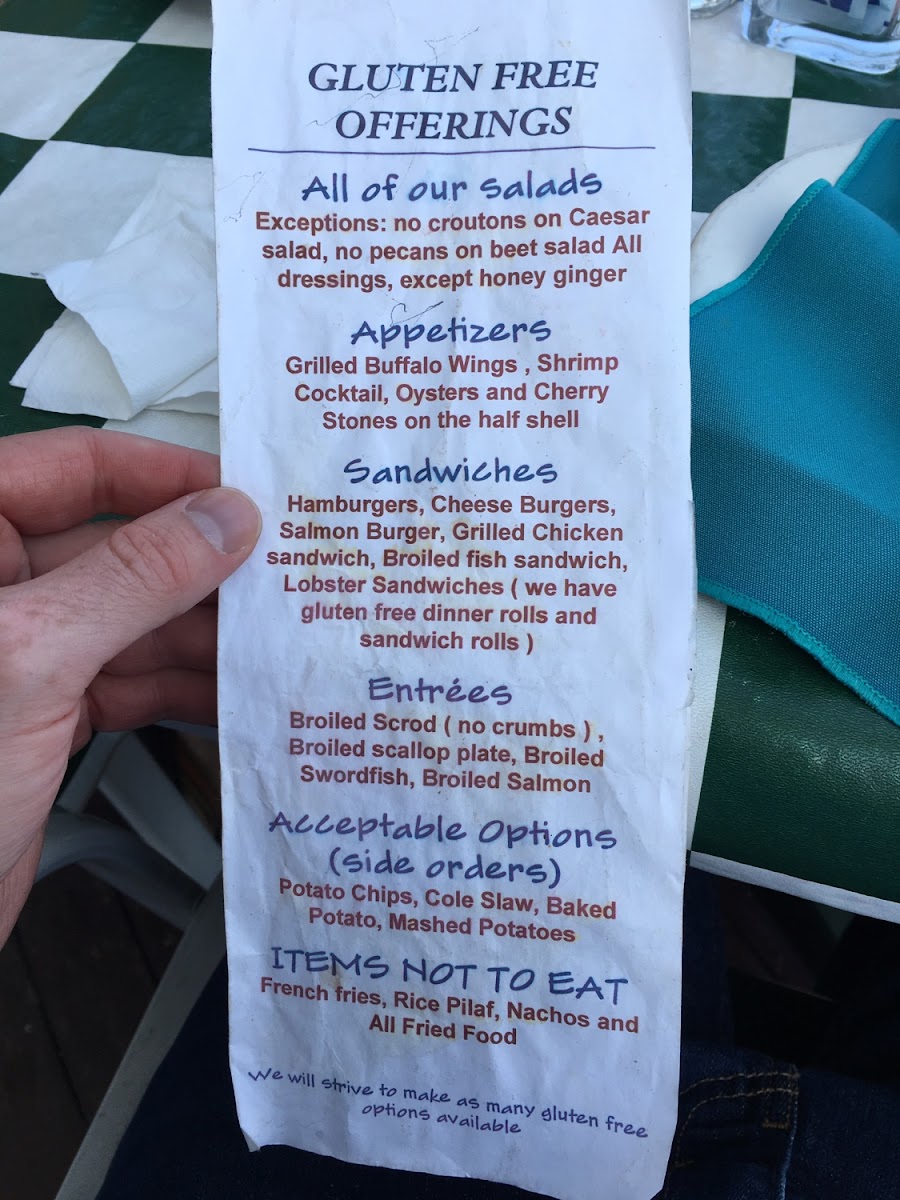 GLUTEN FREE
OFFERINGS
All of our salads
Exceptions: no croutons on Caesar
salad, no pecans on beet salad All
dressings, except honey ginger
Appetizers
Grilled Buffalo Wings , Shrimp
Cocktail, Oysters and Cherry
Stones on the half shell
Sandwiches
Hamburgers, Cheese Burgers,
Salmon Burger, Grilled Chicken
sandwich, Broiled fish sandwich,
Lobster Sandwiches ( we have
gluten free dinner rolls and
sandwich rolls )
Entrées
Broiled Scrod ( no crumbs ) ,
Broiled scallop plate, Broiled
Swordfish, Broiled Salmon
Acceptable Options
(side orders)
Potato Chips, Cole Slaw, Baked
Potato, Mashed Potatoes
ITEMS NOT TO EAT
French fries, Rice Pilaf, Nachos and
All Fried Food
We will strive to make as many gluten free
options available